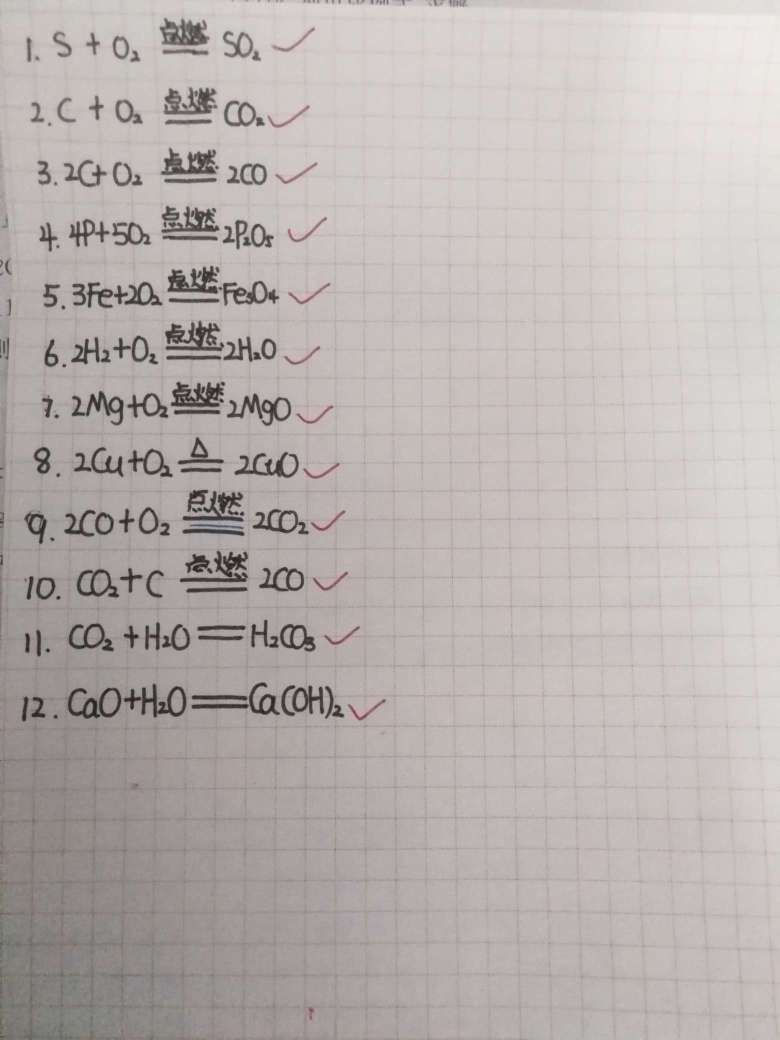 1. S + O₂ 点燃 SO₂
2. C + O₂ 点燃 CO₂
3. 2C+O₂ 点燃 2CO
4. 4P+5O₂ 点燃 2P₂O₅
5. 3Fe+2O₂ 点燃 Fe₃O₄
6. 2H₂+O₂ 点燃 2H₂O
7. 2Mg+O₂ 点燃 2MgO
8. 2Cu+O₂ △ 2CuO
9. 2CO+O₂ 点燃 2CO₂
10. CO₂+C 点燃 2CO
11. CO₂+H₂O══H₂CO₃
12. CaO+H₂O══Ca(OH)₂